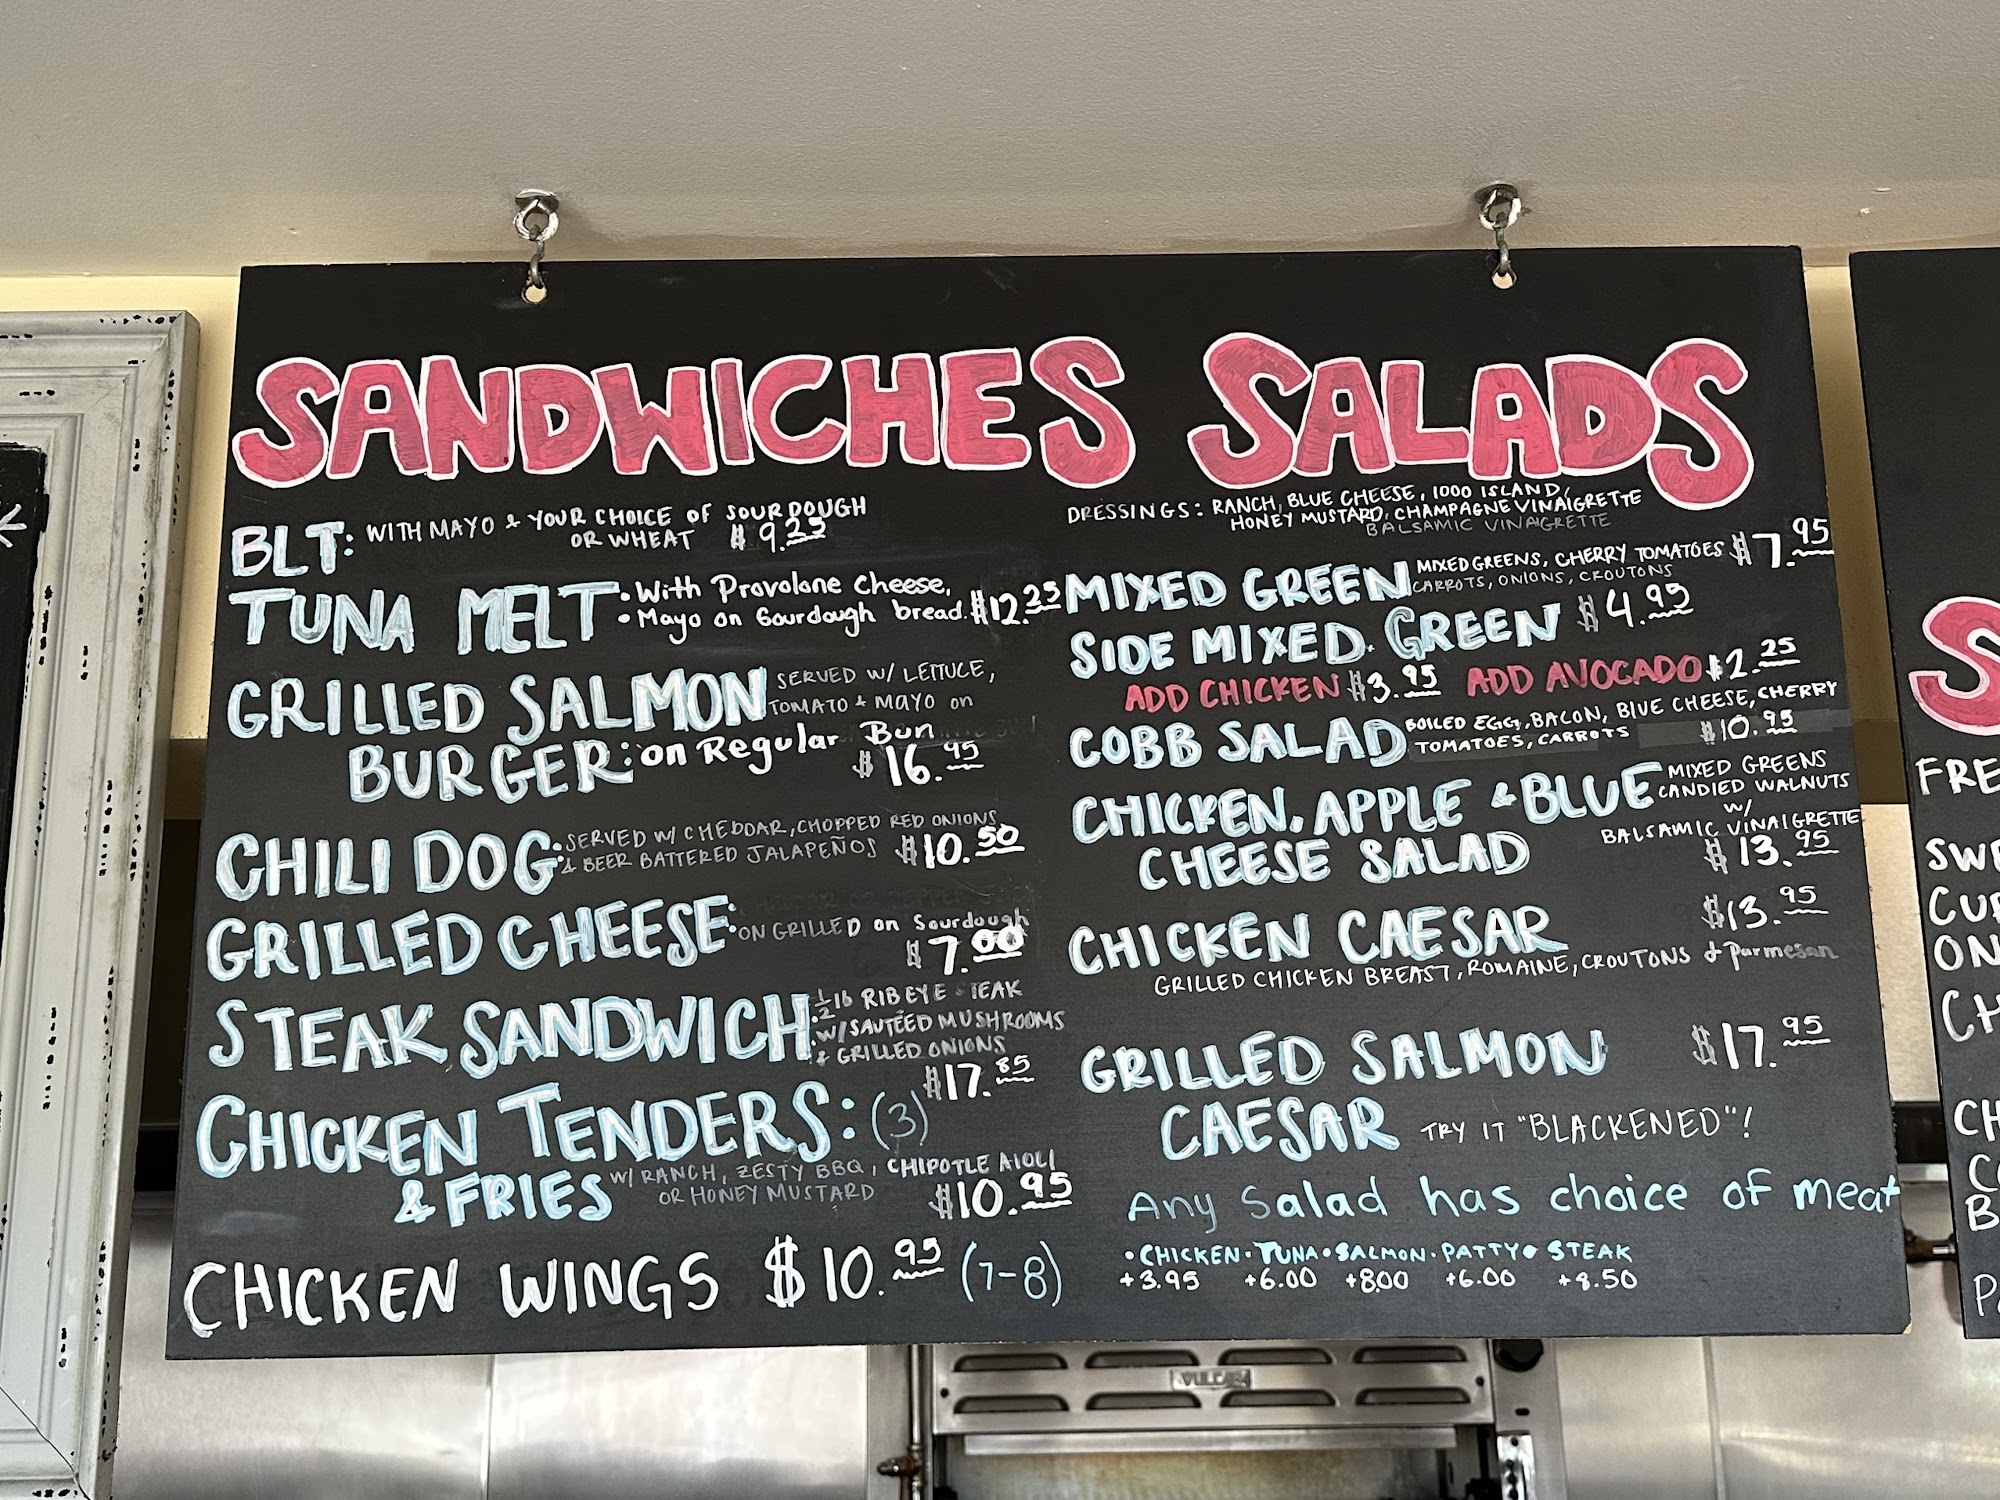 SANDWICHES
BLT: WITH MAYO & YOUR CHOICE OF SOURDOUGH
OR WHEAT $9.25
TUNA MELT • With Provolone Cheese,
• Mayo on Sourdough bread. $12.25
GRILLED SALMON SERVED W/ LETTUCE,
TOMATO + MAYO on
BURGER: on Regular Bun
$16.95
CHILI DOG: SERVED W/ CHEDDAR, CHOPPED RED ONIONS
& BEER BATTERED JALAPEÑOS $10.50
GRILLED CHEESE: ON GRILLED on Sourdough
$7.00
STEAK SANDWICH: 1/2 lb RIBEYE STEAK
W/ SAUTÉED MUSHROOMS
& GRILLED ONIONS
$17.85
CHICKEN TENDERS: (3)
& FRIES W/ RANCH, ZESTY BBQ, CHIPOTLE AIOLI
OR HONEY MUSTARD $10.95
CHICKEN WINGS $10.95 (7-8)
SALADS
DRESSINGS: RANCH, BLUE CHEESE, 1000 ISLAND,
HONEY MUSTARD, CHAMPAGNE VINAIGRETTE
BALSAMIC VINAIGRETTE
MIXED GREEN MIXED GREENS, CHERRY TOMATOES $7.95
CARROTS, ONIONS, CROUTONS
SIDE MIXED GREEN $4.95
ADD CHICKEN $3.95 ADD AVOCADO $2.25
COBB SALAD BOILED EGG, BACON, BLUE CHEESE, CHERRY
TOMATOES, CARROTS $10.95
CHICKEN, APPLE & BLUE MIXED GREENS
CANDIED WALNUTS
W/
BALSAMIC VINAIGRETTE
CHEESE SALAD $13.95
CHICKEN CAESAR $13.95
GRILLED CHICKEN BREAST, ROMAINE, CROUTONS & Parmesan
GRILLED SALMON $17.95
CAESAR TRY IT "BLACKENED"!
Any Salad has choice of meat
• CHICKEN • TUNA • SALMON • PATTY • STEAK
+3.95 +6.00 +8.00 +6.00 +8.50
S
FRE
SWE
CUR
ON
CH
CH
B
VULCAN